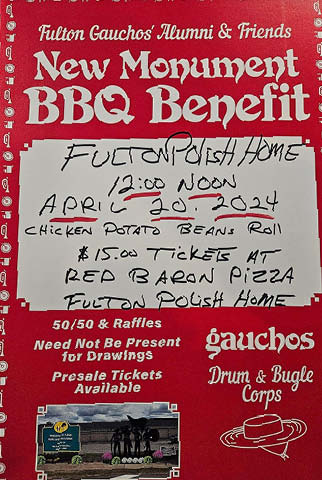 Fulton Gauchos' Alumni & Friends
New Monument
BBQ Benefit
FULTON POLISH HOME
12:00 NOON
APRIL 20, 2024
CHICKEN POTATO BEANS ROLL
$15.00 TICKETS AT
RED BARON PIZZA
FULTON POLISH HOME
50/50 & Raffles
Need Not Be Present
for Drawings
Presale Tickets
Available
gauchos
Drum & Bugle
Corps